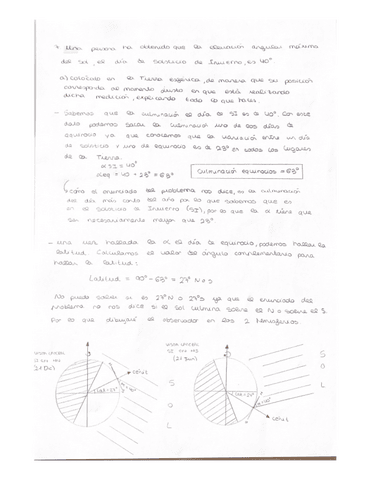 * Una persona ha obtenido que la elevación angular máxima
del sol, el día de solsticio de Invierno, es 40°
a) Colócalo en la Tierra esférica, de manera que su posición
corresponda al momento justo en que está realizando
dicha medición, explicando todo lo que haces.
- Sabemos que la culminación el día de SI es de 40°. Con este
dato podemos sacar la culminación uno de los días de
equinoccio ya que conocemos que la variación entre un día
de solsticio y uno de equinoccio es de 23° en todos los lugares
de la Tierra.
α SI = 40°
α eq = 40 + 23° = 63°
Culminación equinoccios = 63°
Como el enunciado del problema nos dice, es la culminación
del día más corto del año por lo que sabemos que es
en el Solsticio de Invierno (SI), por lo que la α tiene que
ser necesariamente mayor que 23°.
- Una vez hallada la α el día de equinoccio, podemos hallar la
latitud. Calculamos el valor del ángulo complementario para
hallar la latitud:
Latitud = 90° - 63° = 27° N o S
No puedo saber si es 27°N o 27°S ya que el enunciado del
problema no nos dice si el sol culmina sobre el N o sobre el S.
Por lo que dibujaré el observador en los 2 hemisferios.
SI en HN
(21 Dic)
SI en HS
(21 Jun)
S
O
L